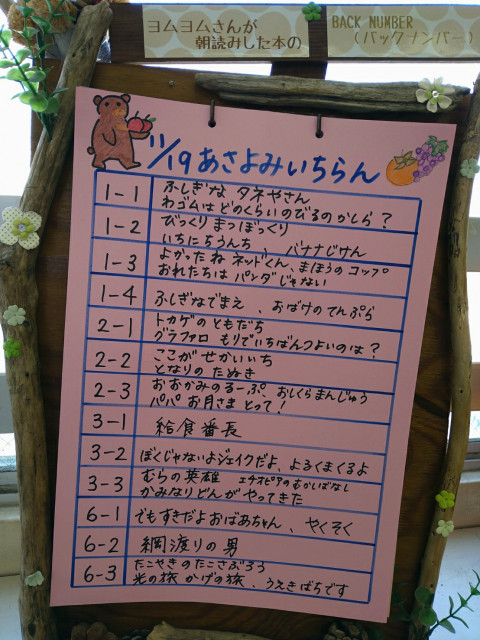 ヨムヨムさんが
朝読みした本の
BACK NUMBER
(バックナンバー)
11/19 あさよみいちらん
1-1 ふしぎな タネやさん
わゴムは どのくらい のびる のかしら?
1-2 びっくり まつぼっくり
いちにちうんち、バナナじけん
1-3 よかったね ネッドくん、まほうの コップ
おれたちは パンダじゃない
1-4 ふしぎなでまえ、おばけの てんぷら
2-1 トカゲの ともだち
グラファロ もりでいちばんつよいのは?
2-2 ここが せかいいち
となりの たぬき
2-3 おおかみのるーぷ、おしくらまんじゅう
パパ お月さま とって!
3-1 給食番長
3-2 ぼくじゃないよジェイクだよ、よるくまくるよ
3-3 むらの英雄 エチオピアのむかしばなし
かみなりどんが やってきた
6-1 でもすきだよ おばあちゃん、やくそく
6-2 綱渡りの男
6-3 たこやきの たこさぶろう
光の旅 かげの旅、うえきばちです